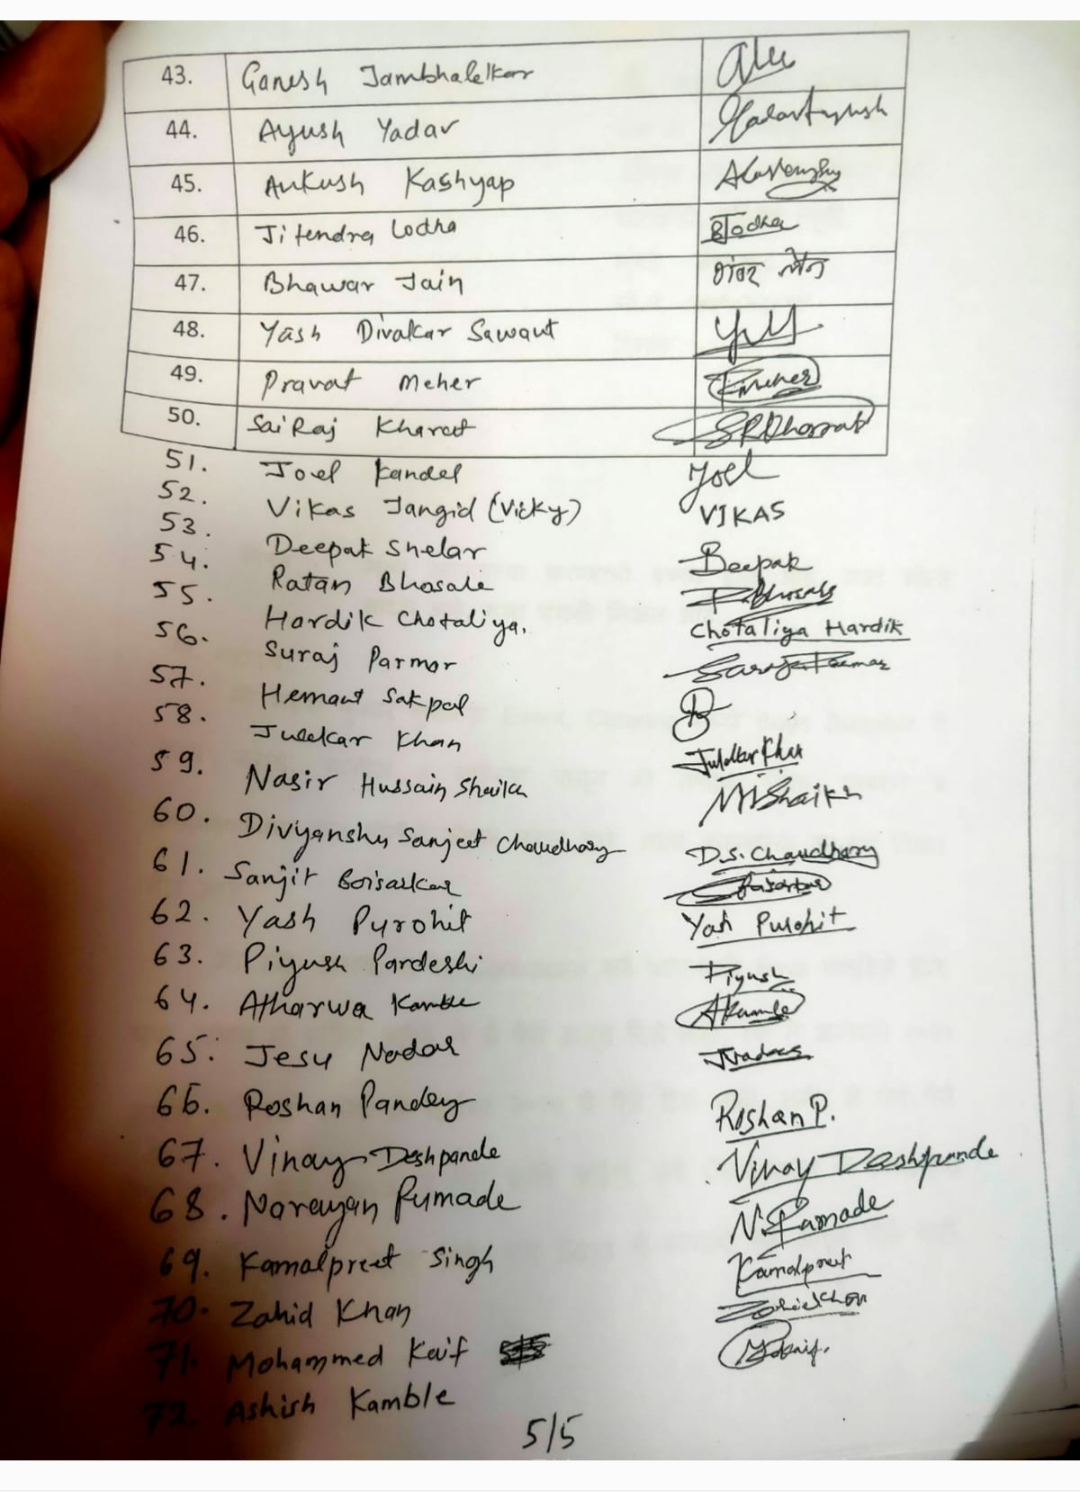 43. Ganesh Jambhalekar
44. Ayush Yadav
45. Ankush Kashyap
46. Jitendra Lodha
47. Bhawar Jain भंवर जैन
48. Yash Divakar Sawant
49. Pravat Meher
50. SaiRaj Kharat
51. Joel Kandel Joel
52. Vikas Jangid (Vicky) VIKAS
53. Deepak Shelar Deepak
54. Ratan Bhosale R.Bhosale
55. Hardik Chotaliya. Chotaliya Hardik
56. Suraj Parmar Suraj Parmar
57. Hemant Sakpal
58. Juldkar Khan Juldkar Khan
59. Nasir Hussain Shaikh NHShaikh
60. Divyanshu Sanjeet Choudhary D.S. Chaudhary
61. Sanjit Boisarkar
62. Yash Purohit Yash Purohit
63. Piyush Pardeshi Piyush
64. Atharwa Kamble AKamble
65. Jesu Nadar JNadar
66. Roshan Pandey Roshan P.
67. Vinay Deshpande Vinay Deshpande
68. Narayan Rumade N. Ramade
69. Kamalpreet Singh Kamalpreet
70. Zahid Khan Zahid Khan
71. Mohammed Kaif M.Kaif.
72. Ashish Kamble
5/5